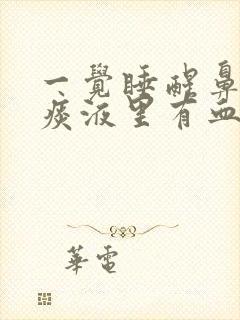 一覺睡醒鼻
痰液里有血
華電